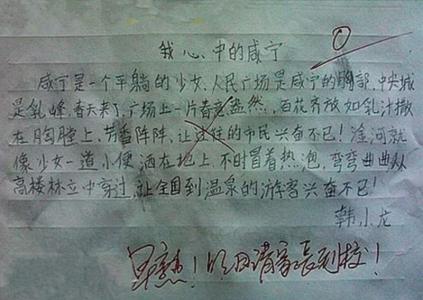 我心中的咸宁
0
咸宁是一个平躺的少女、人民广场是咸宁的胸部,中央城
是乳峰,春天来了,广场上一片春意盎然,百花齐放如乳汁撒
在胸膛上、芳香阵阵、让过往的市民兴奋不已!淦河就
像少女一道小便,洒在地上,不时冒着热泡,弯弯曲曲从
高楼林立中穿过,让全国到温泉的游客兴奋不已!
韩小龙
早熟!明日请家长到校!